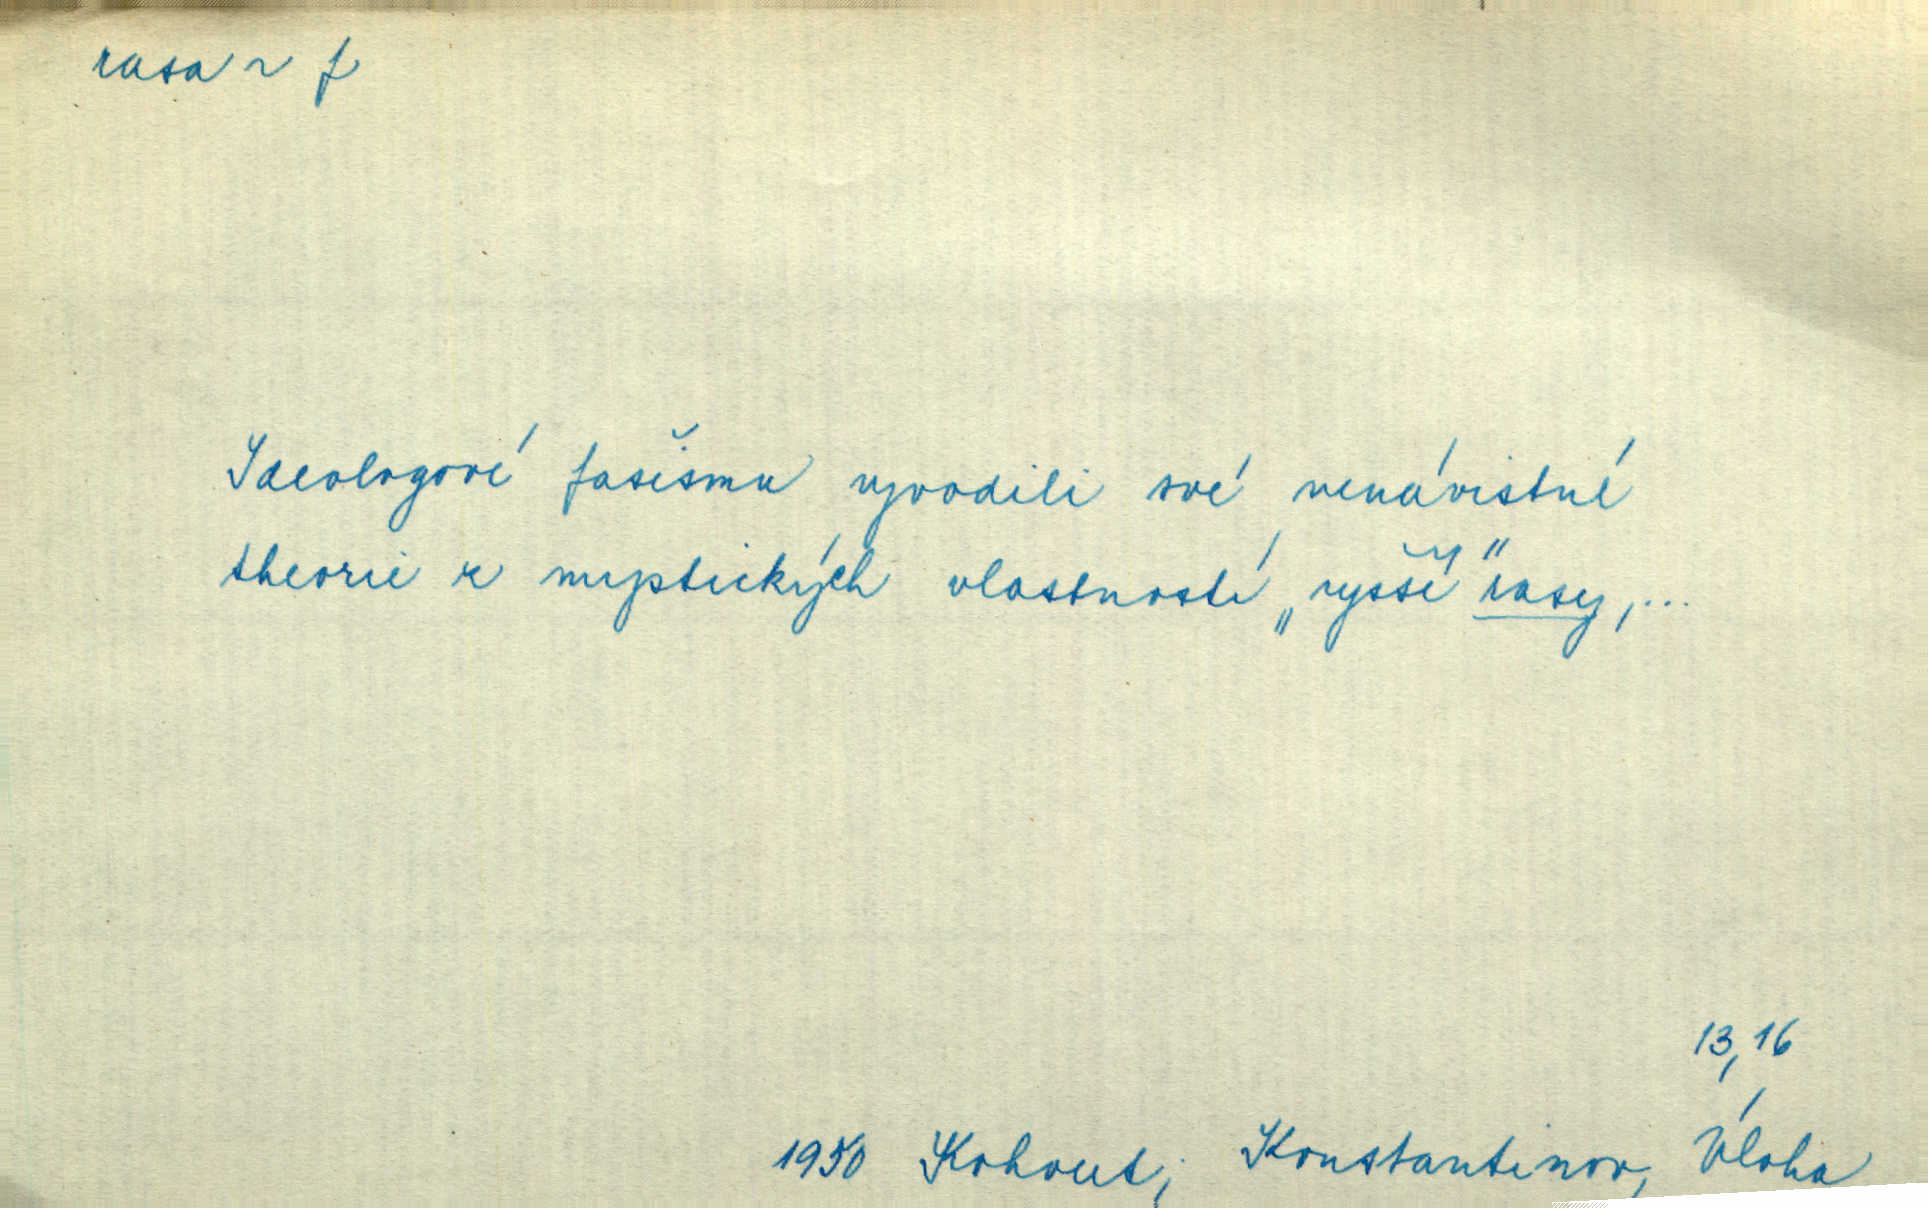 rasa ~ f
Ideologové fašismu vyvodili své nenávistné
theorie z mystických vlastností „vyšší" rasy,...
13,16
1950 Kohout, Konstantinov, Úloha